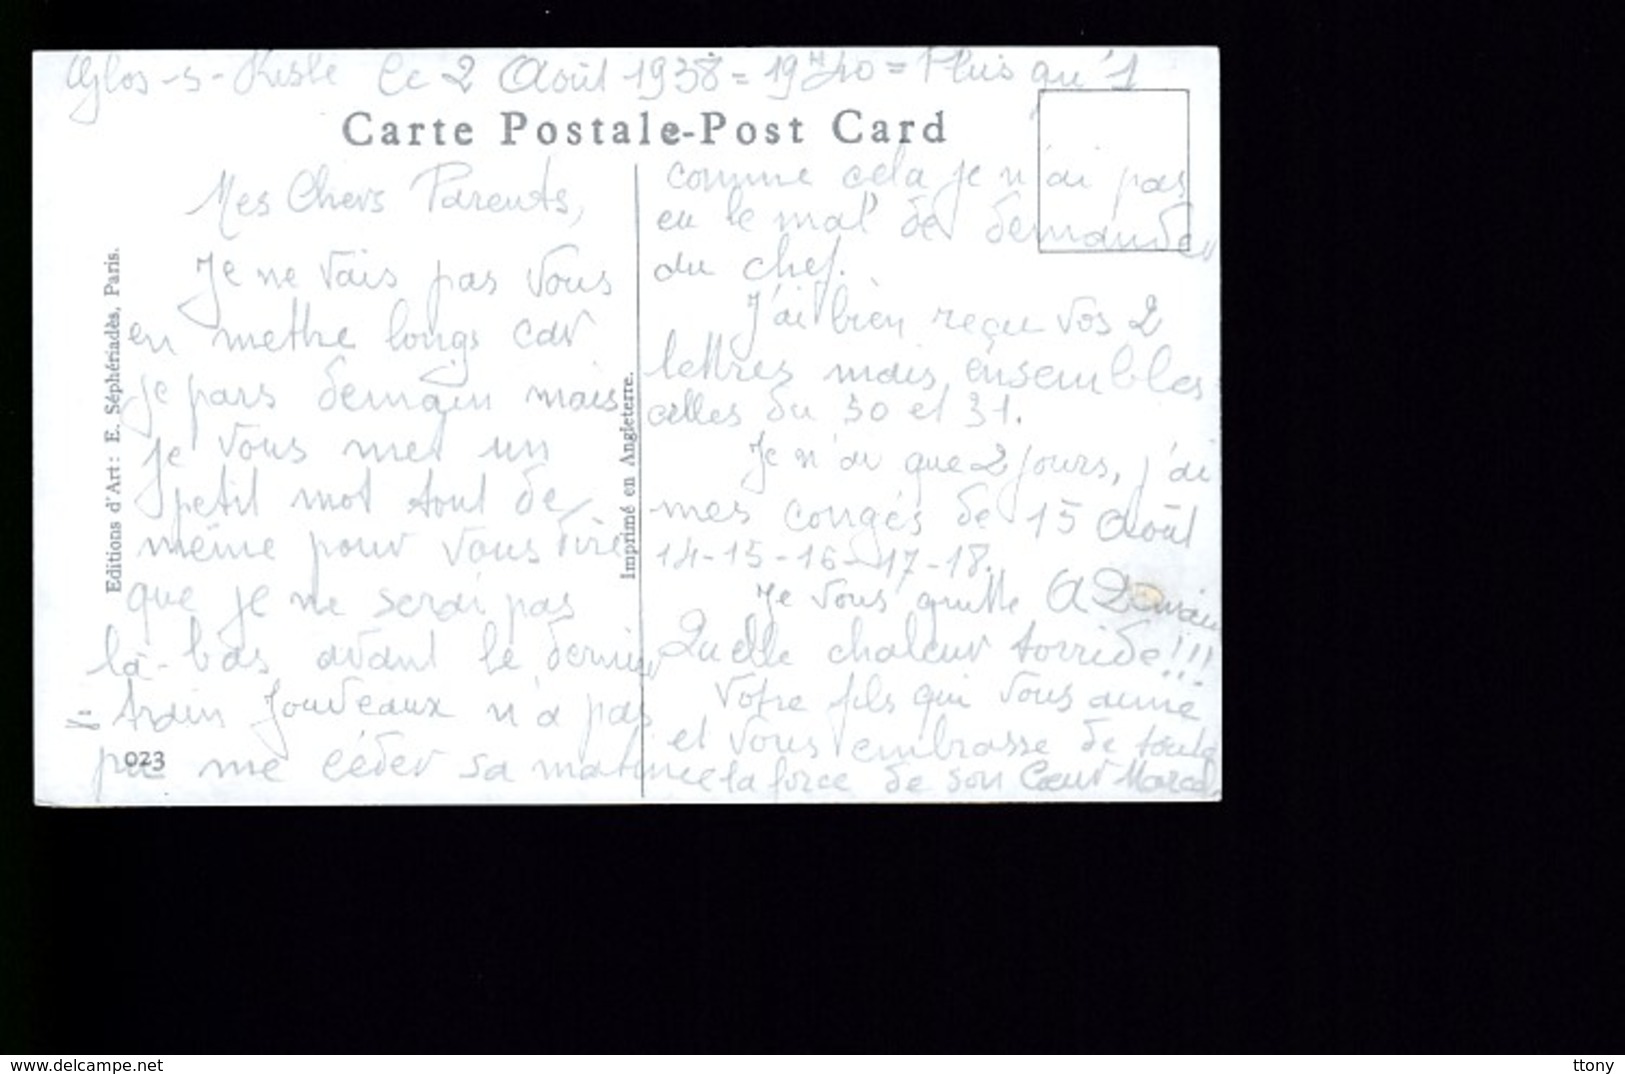 Glos-s-Risle le 2 Août 1938 = 19H40 = Plus qu'1
Carte Postale-Post Card
Mes Chers Parents,
Je ne vais pas vous
en mettre longs car
je pars demain mais
je vous met un
petit mot tout de
même pour vous dire
que je ne serai pas
là-bas avant le dernier
train Jouveaux n'a pas
pu me céder sa matinée
comme cela je n'ai pas
eu le mal de demander
au chef.
J'ai bien reçu vos 2
lettres mais ensembles
celles du 30 et 31.
Je n'ai que 2 jours, j'ai
mes congés de 15 Août
14-15-16-17-18.
Je vous quitte A Demain
Quelle chaleur torride!!!
Votre fils qui vous aime
et vous embrasse de toute
la force de son Cœur Marcel
Editions d'Art: E. Séphériadès, Paris.
Imprimé en Angleterre.
023
www.delcampe.net
ttony